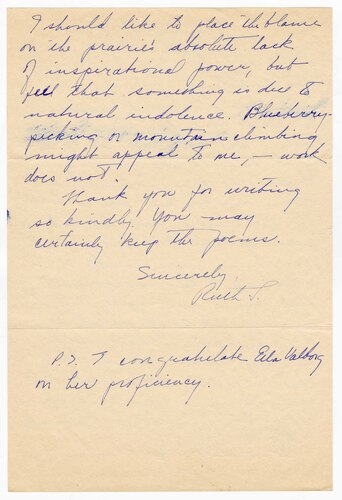 I should like to place the blame
on the prairie's absolute lack
of inspirational power, but
feel that something is due to
natural indolence. Blueberry-
picking or mountain climbing
might appeal to me, – work
does not!
Thank you for writing
so kindly. You may
certainly keep the poems.
Sincerely,
Ruth S.
P.S. I congratulate Ella Valborg
on her proficiency.